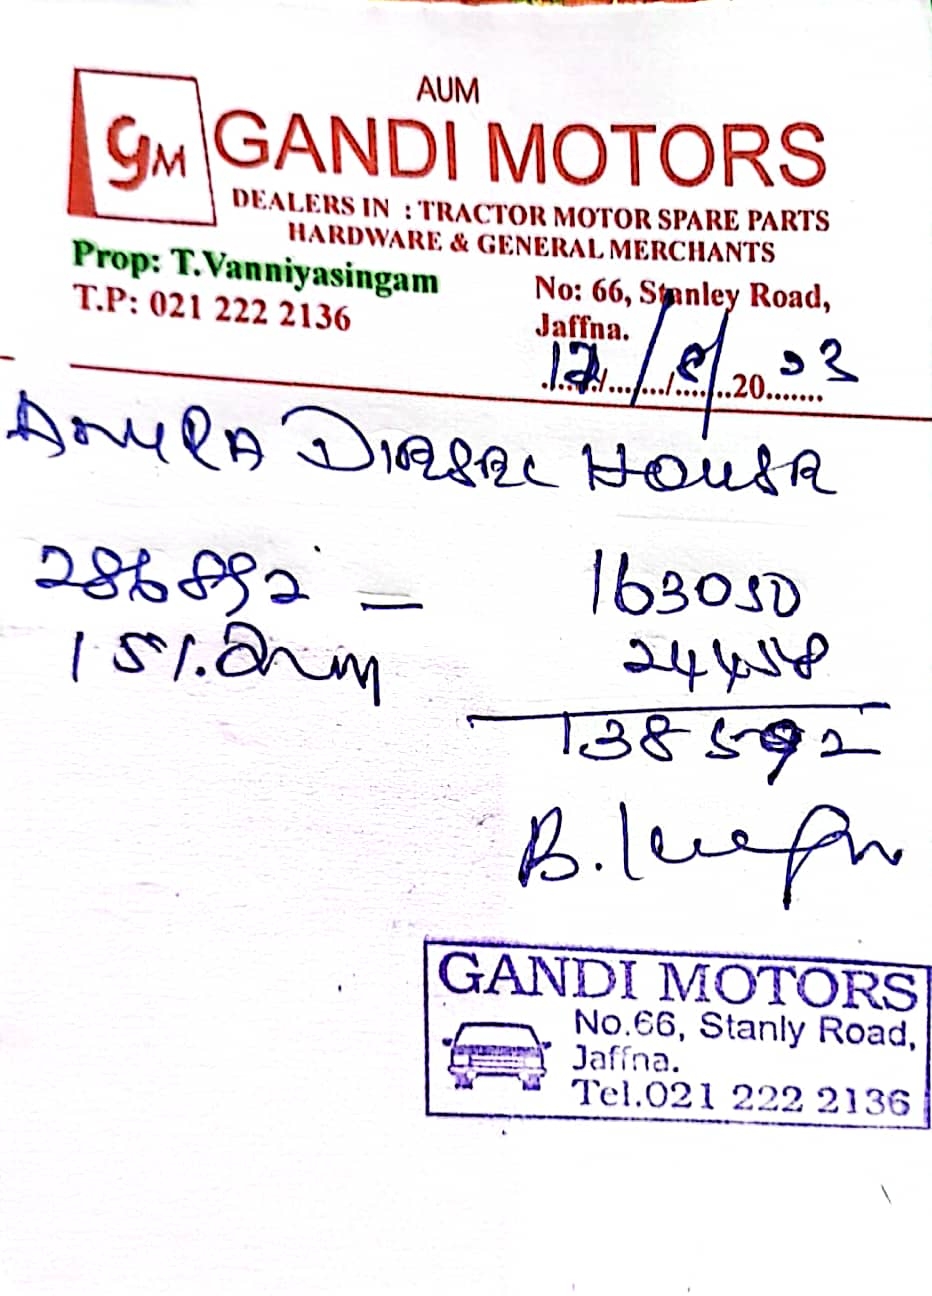 AUM
GM GANDI MOTORS
DEALERS IN : TRACTOR MOTOR SPARE PARTS
HARDWARE & GENERAL MERCHANTS
Prop: T.Vanniyasingam
T.P: 021 222 2136
No: 66, Stanley Road,
Jaffna.
12/8/2023
ANURA DIESEL HOUSE
286892 — 163050
15%. 24458
138592
GANDI MOTORS
No.66, Stanly Road,
Jaffna.
Tel.021 222 2136